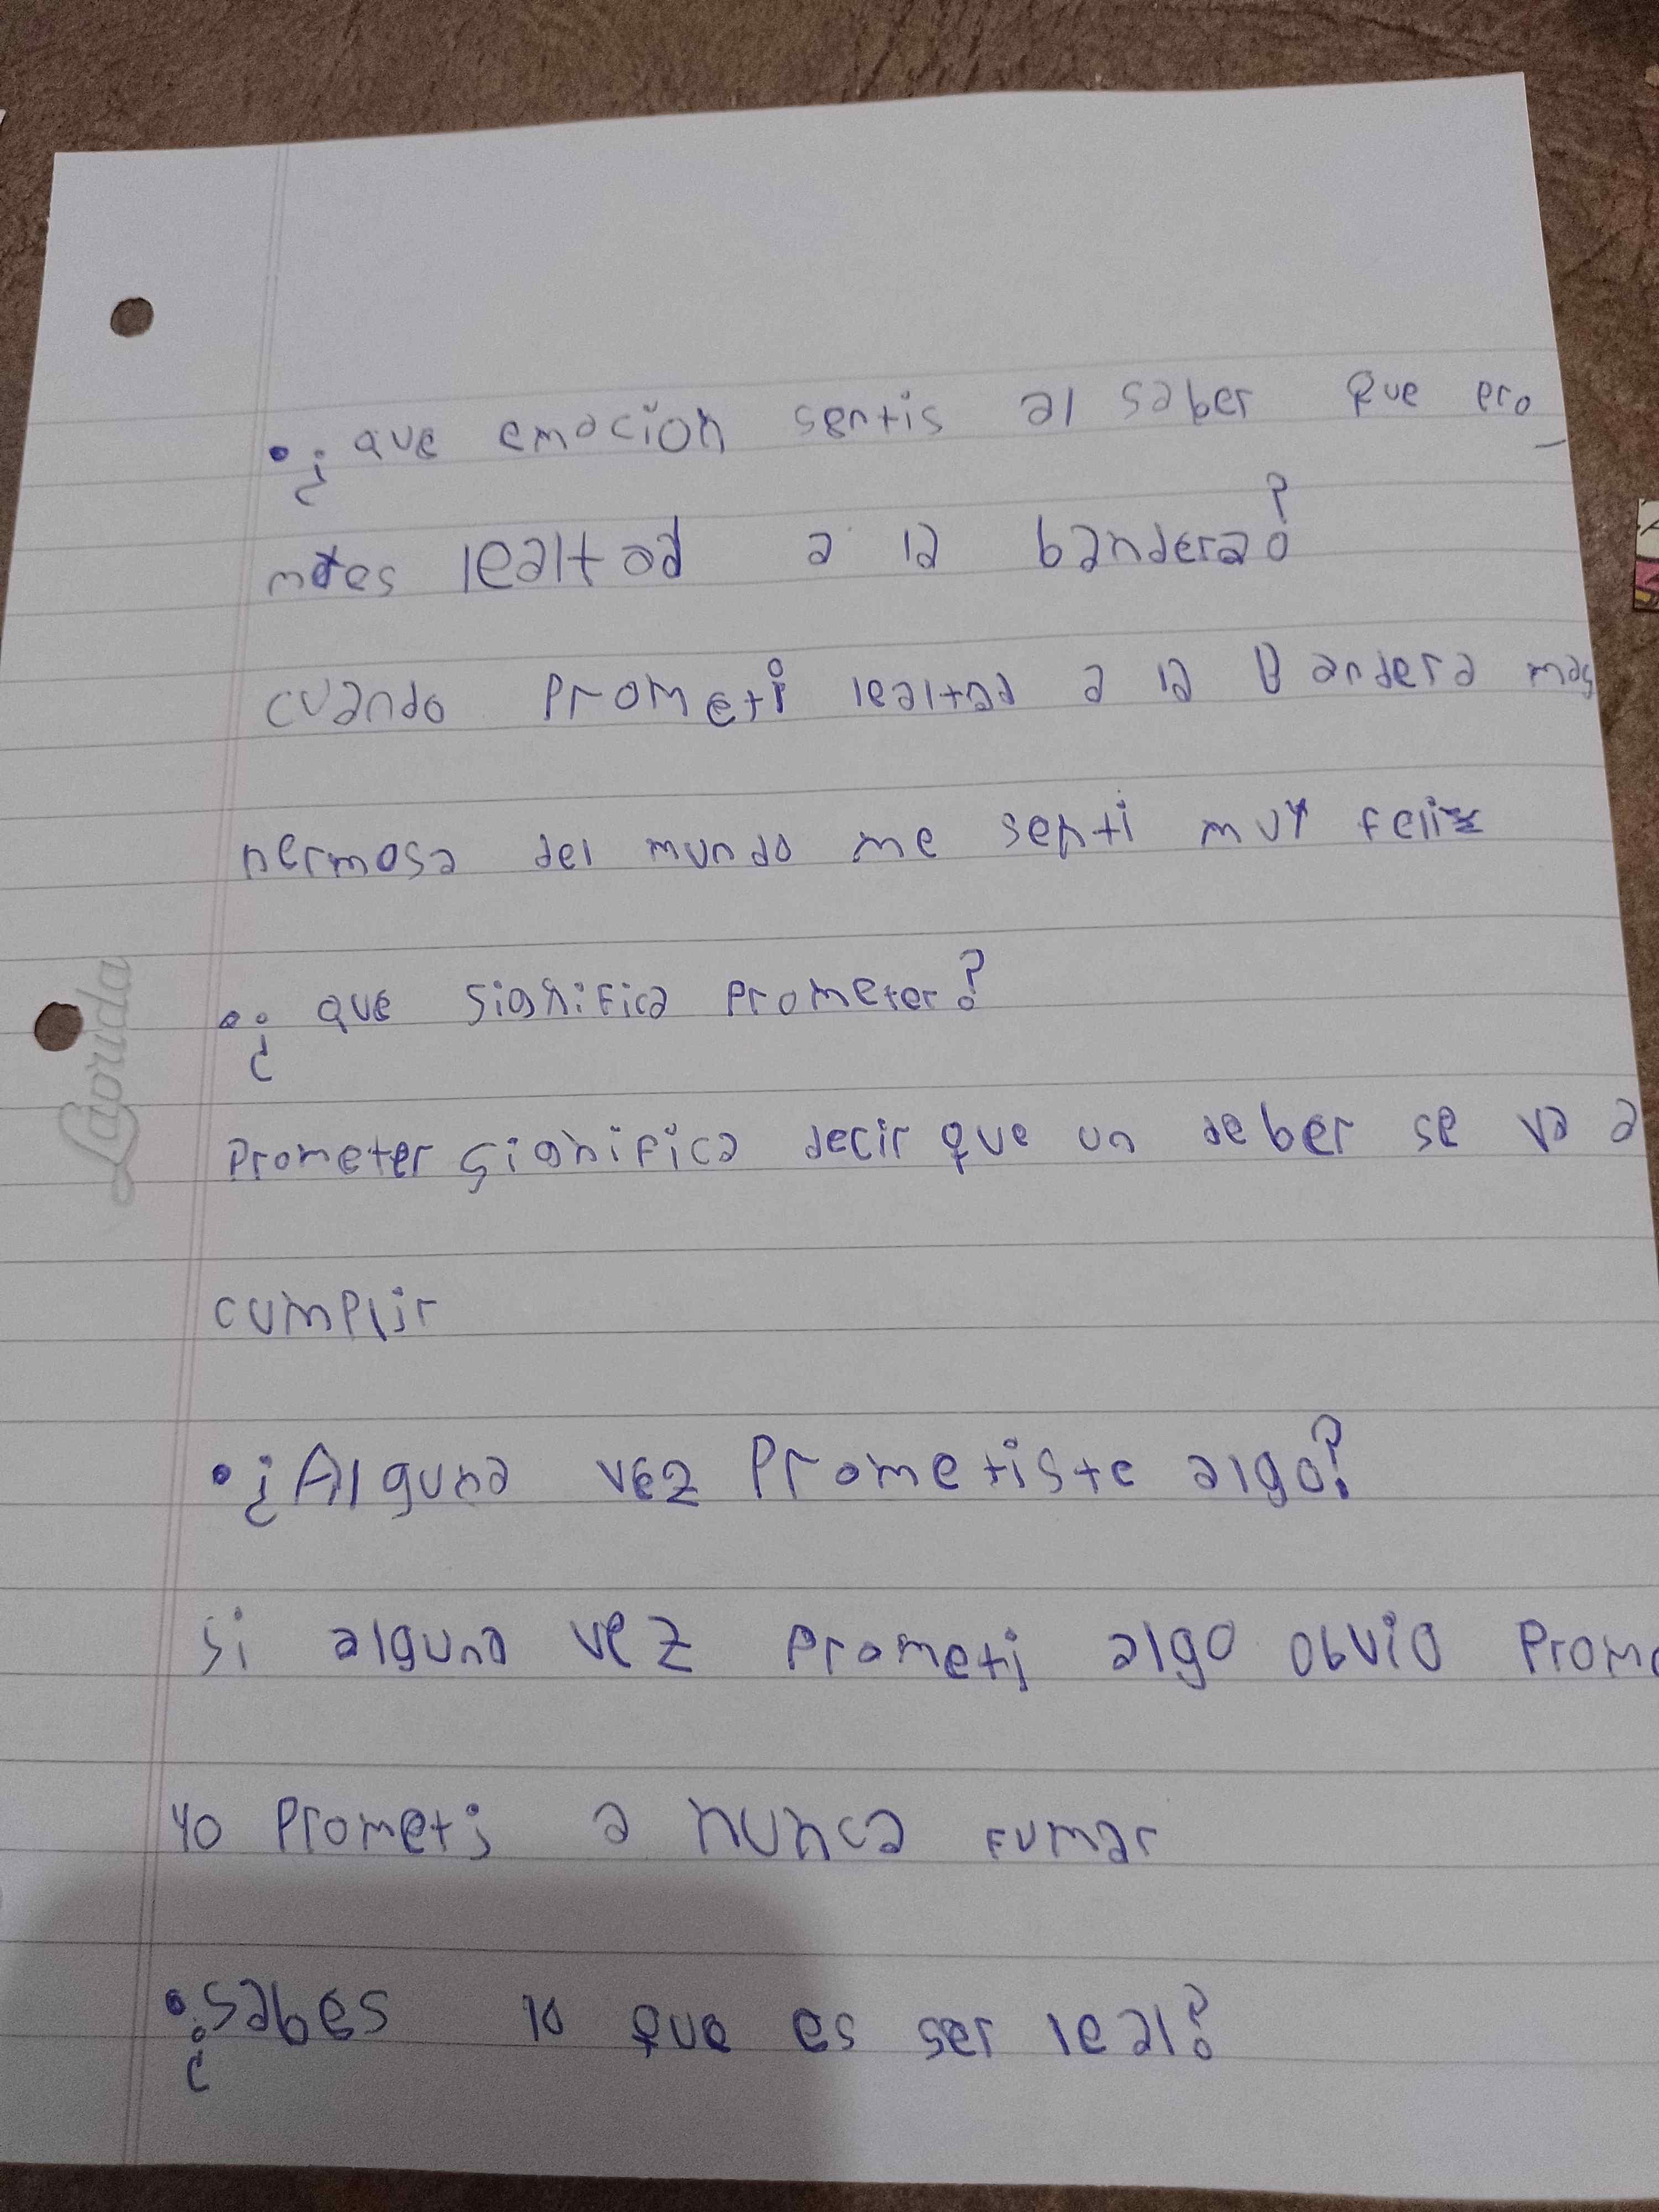 • ¿ que emocion sentis al saber que pro_
metes lealtad a la bandera?
cuando prometi lealtad a la Bandera mas
hermosa del mundo me senti muy feliz
• ¿ que significa prometer?
Prometer significa decir que un deber se va a
cumplir
• ¿Alguna vez Prometiste algo?
si alguna vez prometi algo obvio Prome
yo Prometi a nunca fumar
• ¿sabes lo que es ser leal?
Laprida